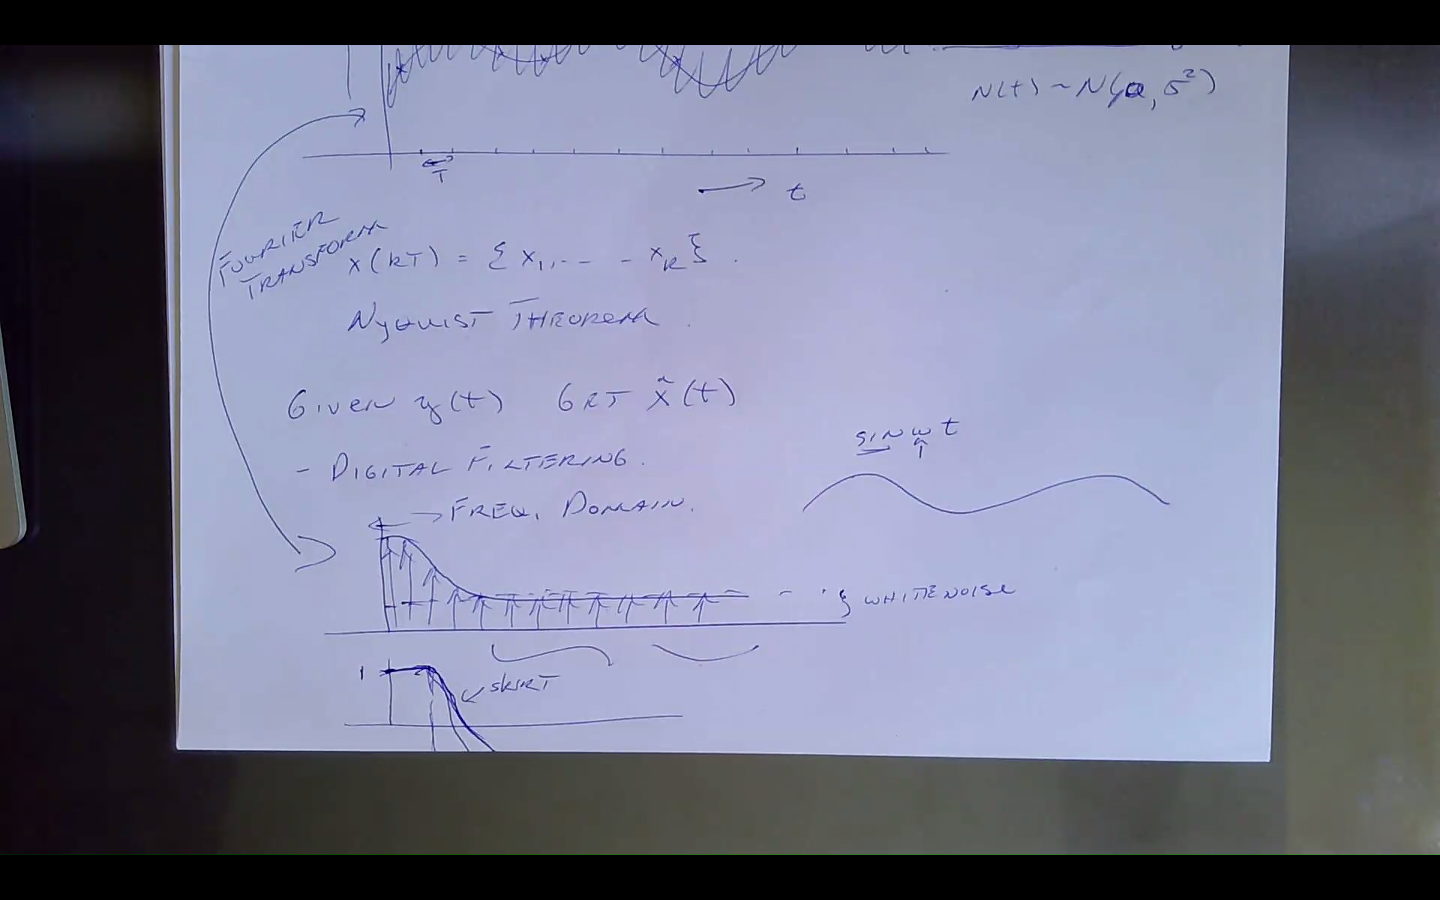 N(t) ~ N(0, σ²)
T
t
FOURIER
TRANSFORM
x(kT) = { x1, -- - xk } .
NYQUIST THEOREM .
GIVEN y(t) GET x̂(t)
SIN ω t
- DIGITAL FILTERING .
→ FREQ. DOMAIN.
- - . } WHITE NOISE
1
SKIRT